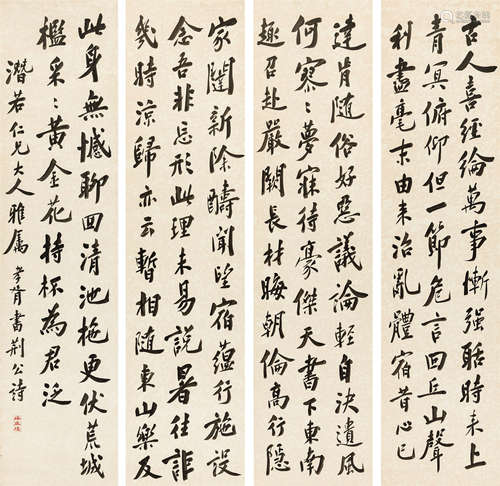 古人喜經綸萬事慚强聒時来上
青冥俯仰但一節危言回丘山聲
利盡毫末由来治亂體宿昔心已
達肯随俗好惡議論輕自決遺風
何寥〻夢寐待豪傑天書下東南
趣召赴嚴闕長材晦朝倫高行隱
家閥新除疇聞望宿蘊行施設
念吾非忘形此理未易説暑往詎
幾時涼歸亦云暫相随東山樂及
此身無憾聊回清池柂更伏荒城
檻采〻黄金花持杯為君泛
潛若仁兄大人雅属 孝胥書荆公詩